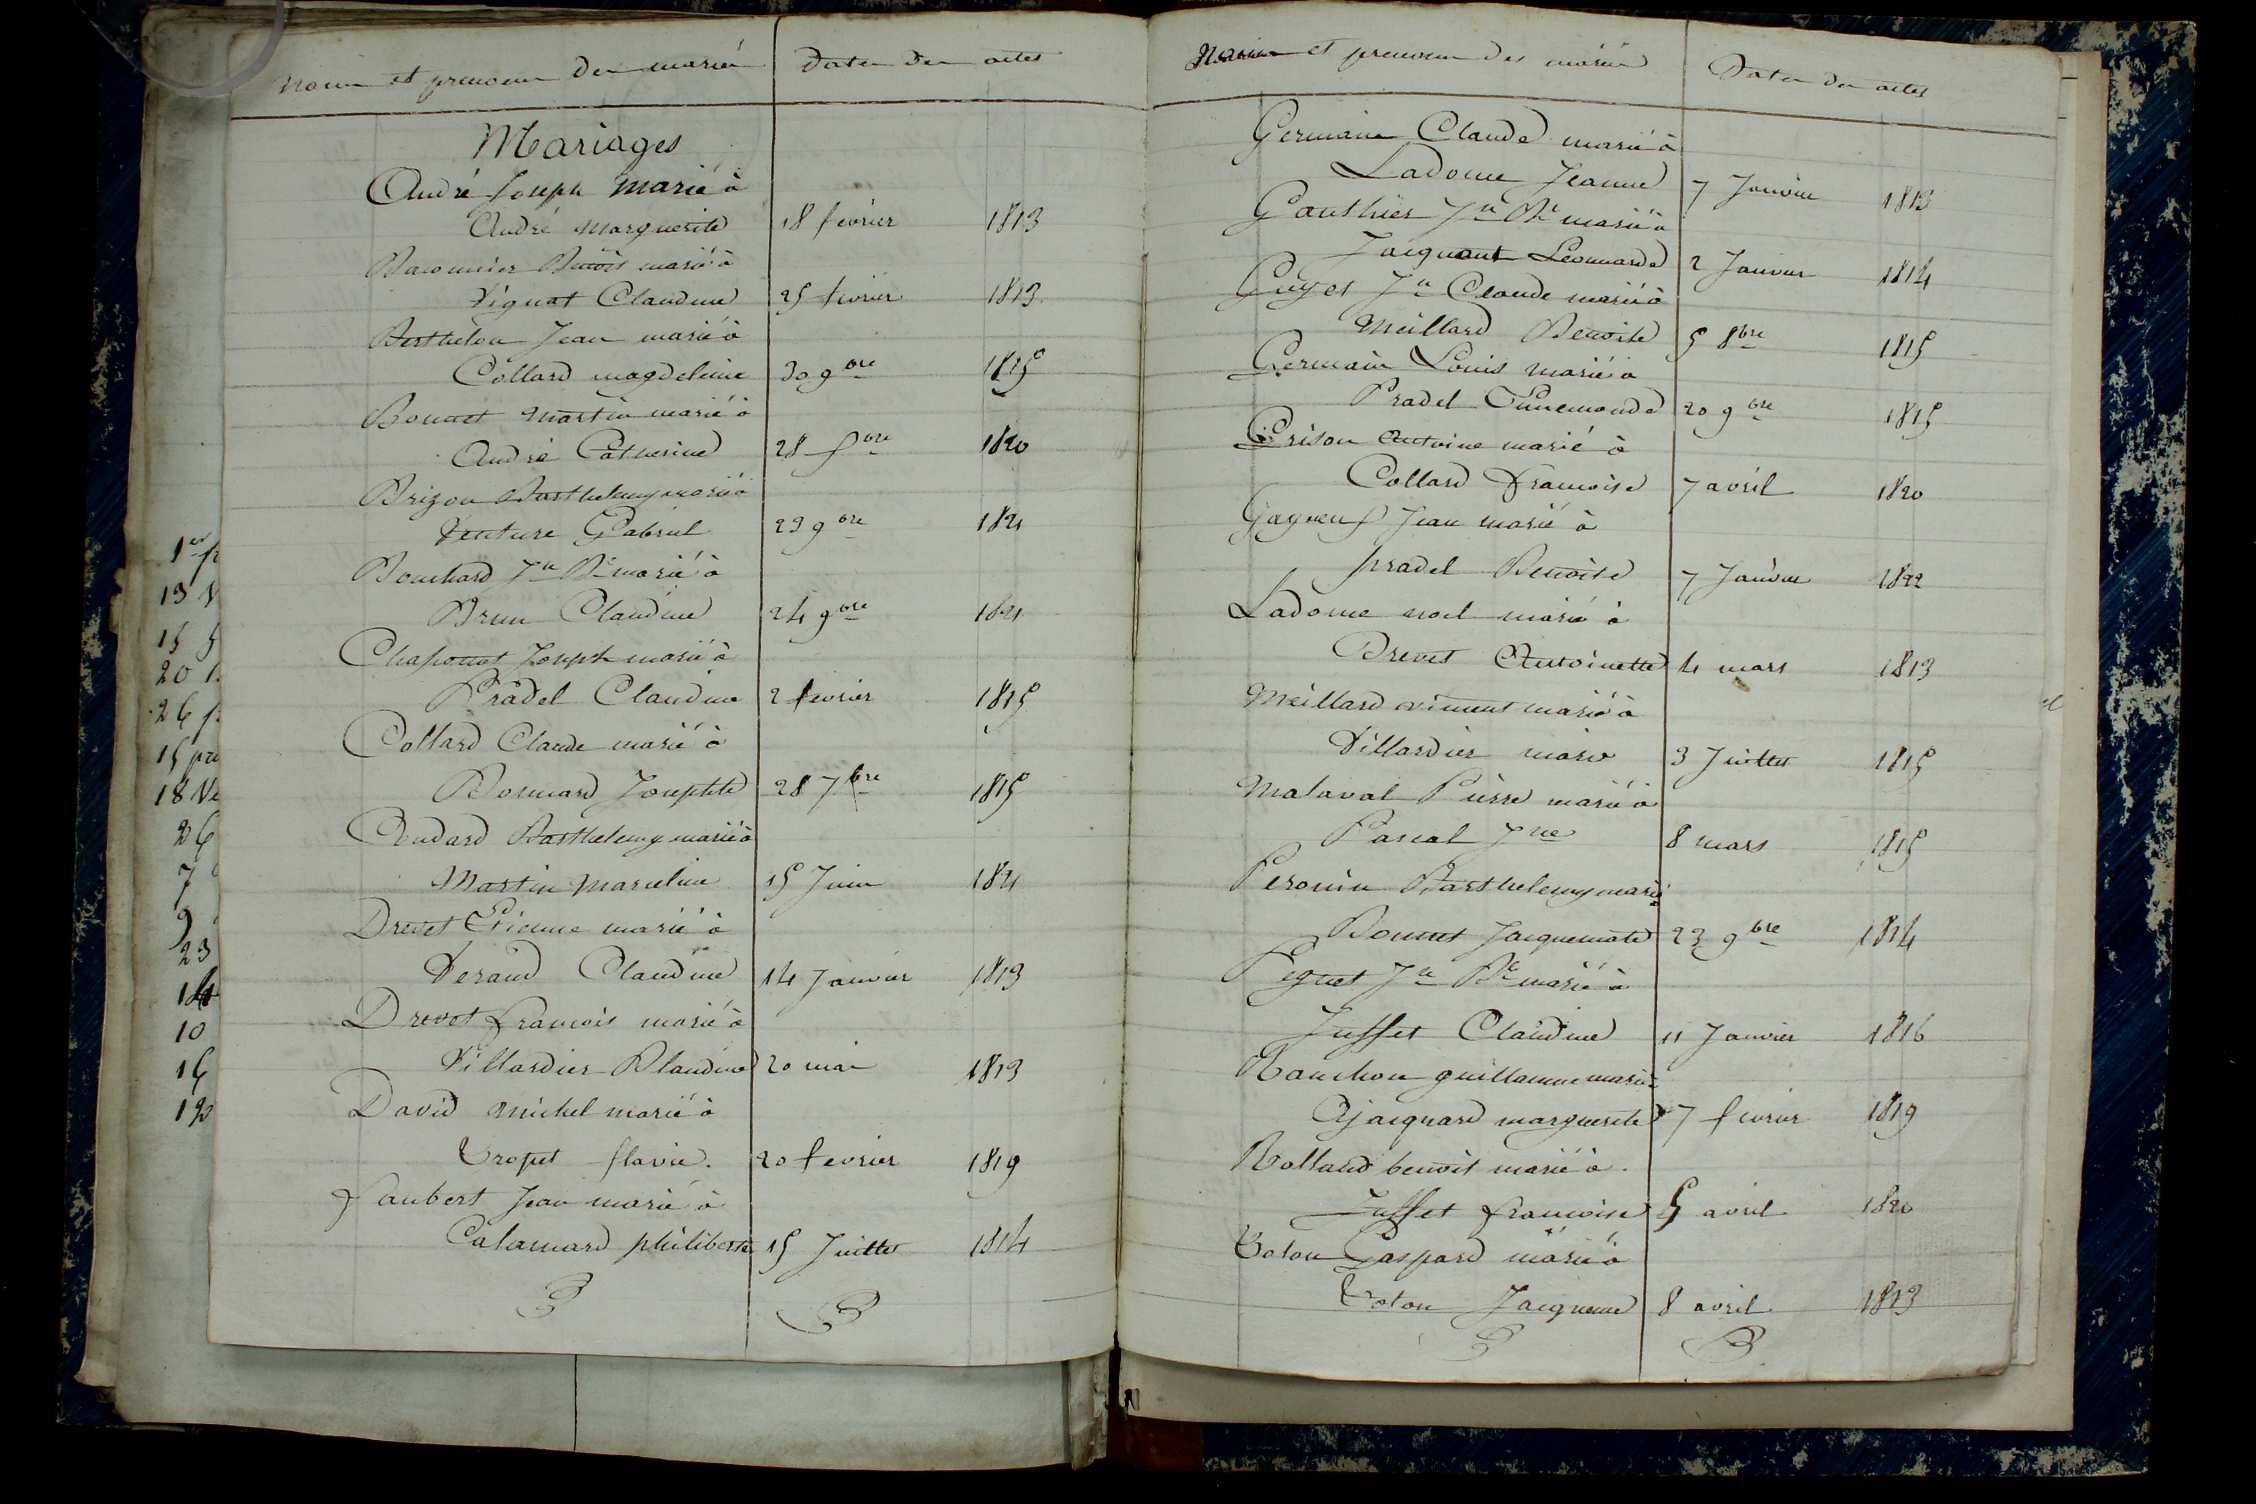 Noms et prenoms des mariés
Dates des actes
Mariages
André Joseph Marié à
André Marguerite 18 fevrier 1813
Baconnier Benoît marié à
Viguat Claudine 25 fevrier 1813
Berthelon Jean marié à
Collard magdeleine 30 9bre 1815
Bonnet Martin marié à
André Catherine 28 1820
Brizon Barthelemy marié à
Venture Gabriel 23 9bre 1821
Bouchard Jn Bte marié à
Brun Claudine 24 9bre 1821
Chaponat Joseph marié à
Pradel Claudine 2 fevrier 1815
Collard Claude marié à
Bonnard Josephte 28 7bre 1815
Cundard Barthelemy marié à
Martin Marceline 15 Juin 1821
Drevet Etienne marié à
Veraud Claudine 14 Janvier 1813
Drevet francois marié à
Villardier Blandine 20 mai 1813
David michel marié à
Tropet flavie. 20 fevrier 1819
faubert Jean marié à
Calamard philiberte 15 Juillet 1814
Noms et prenoms des mariés
Dates des actes
Germain Claude marié à
Ladoue Jeanne 7 Janvier 1813
Gauthier Jn Bte marié à
Jacquant Leonnarde 2 Janvier 1814
Guyot Jn Claude marié à
Meillard Benoite 5 8bre 1815
Germain Louis marié à
Pradel Ennemonde 20 9bre 1815
Grison Antoine marié à
Collard francoise 7 avril 1820
Gagneuf Jean marié à
pradel Benoite 7 Janvier 1822
Ladoue noel marié à
Drevet Antoinette 4 mars 1813
Meillard vincent marié à
Villardier marie 3 Juillet 1815
Malaval Pierre marié à
Pascal Jne 8 mars 1815
Peronin Barthelemy marié à
Bonnet Jacquemate 23 9bre 1814
Pignet Jn Bte marié à
Jusset Claudine 11 Janvier 1816
Ranchon guillaume marié à
Ajacquard marguerite 7 fevrier 1819
Rolland benoit marié à
Jusset francoise 5 avril 1820
Toton Gaspard marié à
Toton Jacqueme 8 avril 1813